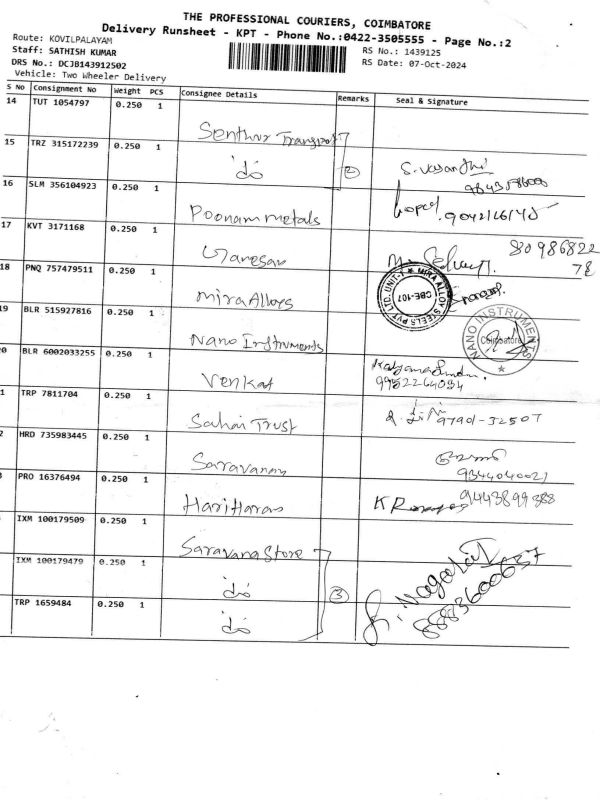 THE PROFESSIONAL COURIERS, COIMBATORE
Delivery Runsheet - KPT - Phone No.:0422-3505555 - Page No.:2
Route: KOVILPALAYAM
RS No.: 1439125
Staff: SATHISH KUMAR
RS Date: 07-Oct-2024
DRS No.: DCJB143912502
Vehicle: Two Wheeler Delivery
S No Consignment No Weight PCS Consignee Details Remarks Seal & Signature
14 TUT 1054797 0.250 1 Senthur Transport
15 TRZ 315172239 0.250 1 do 2 S. Vasanthi
16 SLM 356104923 0.250 1 Poonam metals Gopal
17 KVT 3171168 0.250 1 Ganesan 80 986822
78
18 PNQ 757479511 0.250 1 Mira Alloys MIRA ALLOY STEELS PVT LTD. UNIT-I CBE-107
19 BLR 515927816 0.250 1 Nano Instruments NANO INSTRUMENTS Coimbatore
20 BLR 6002033255 0.250 1 Venkat
9952264094
1 TRP 7811704 0.250 1 Sahai Trust 9790-32507
2 HRD 735983445 0.250 1 Saravanan
9344040021
3 PRO 16376494 0.250 1 Hari Haran 9443899388
IXM 100179509 0.250 1 Saravana Store
IXM 100179479 0.250 1 do 3
TRP 1659484 0.250 1 do 8883600637